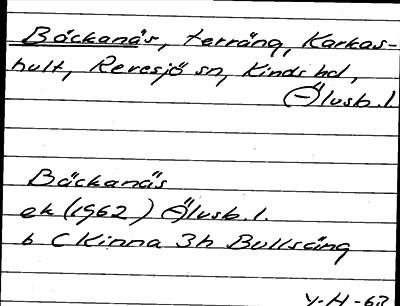 Bäckanäs, terräng, Karkas-
hult, Revesjö sn, Kinds hd,
Älvsb. l
Bäckanäs
ek (1962) Älvsb. l.
6 C Kinna 3h Bullsäng
Y-H -63